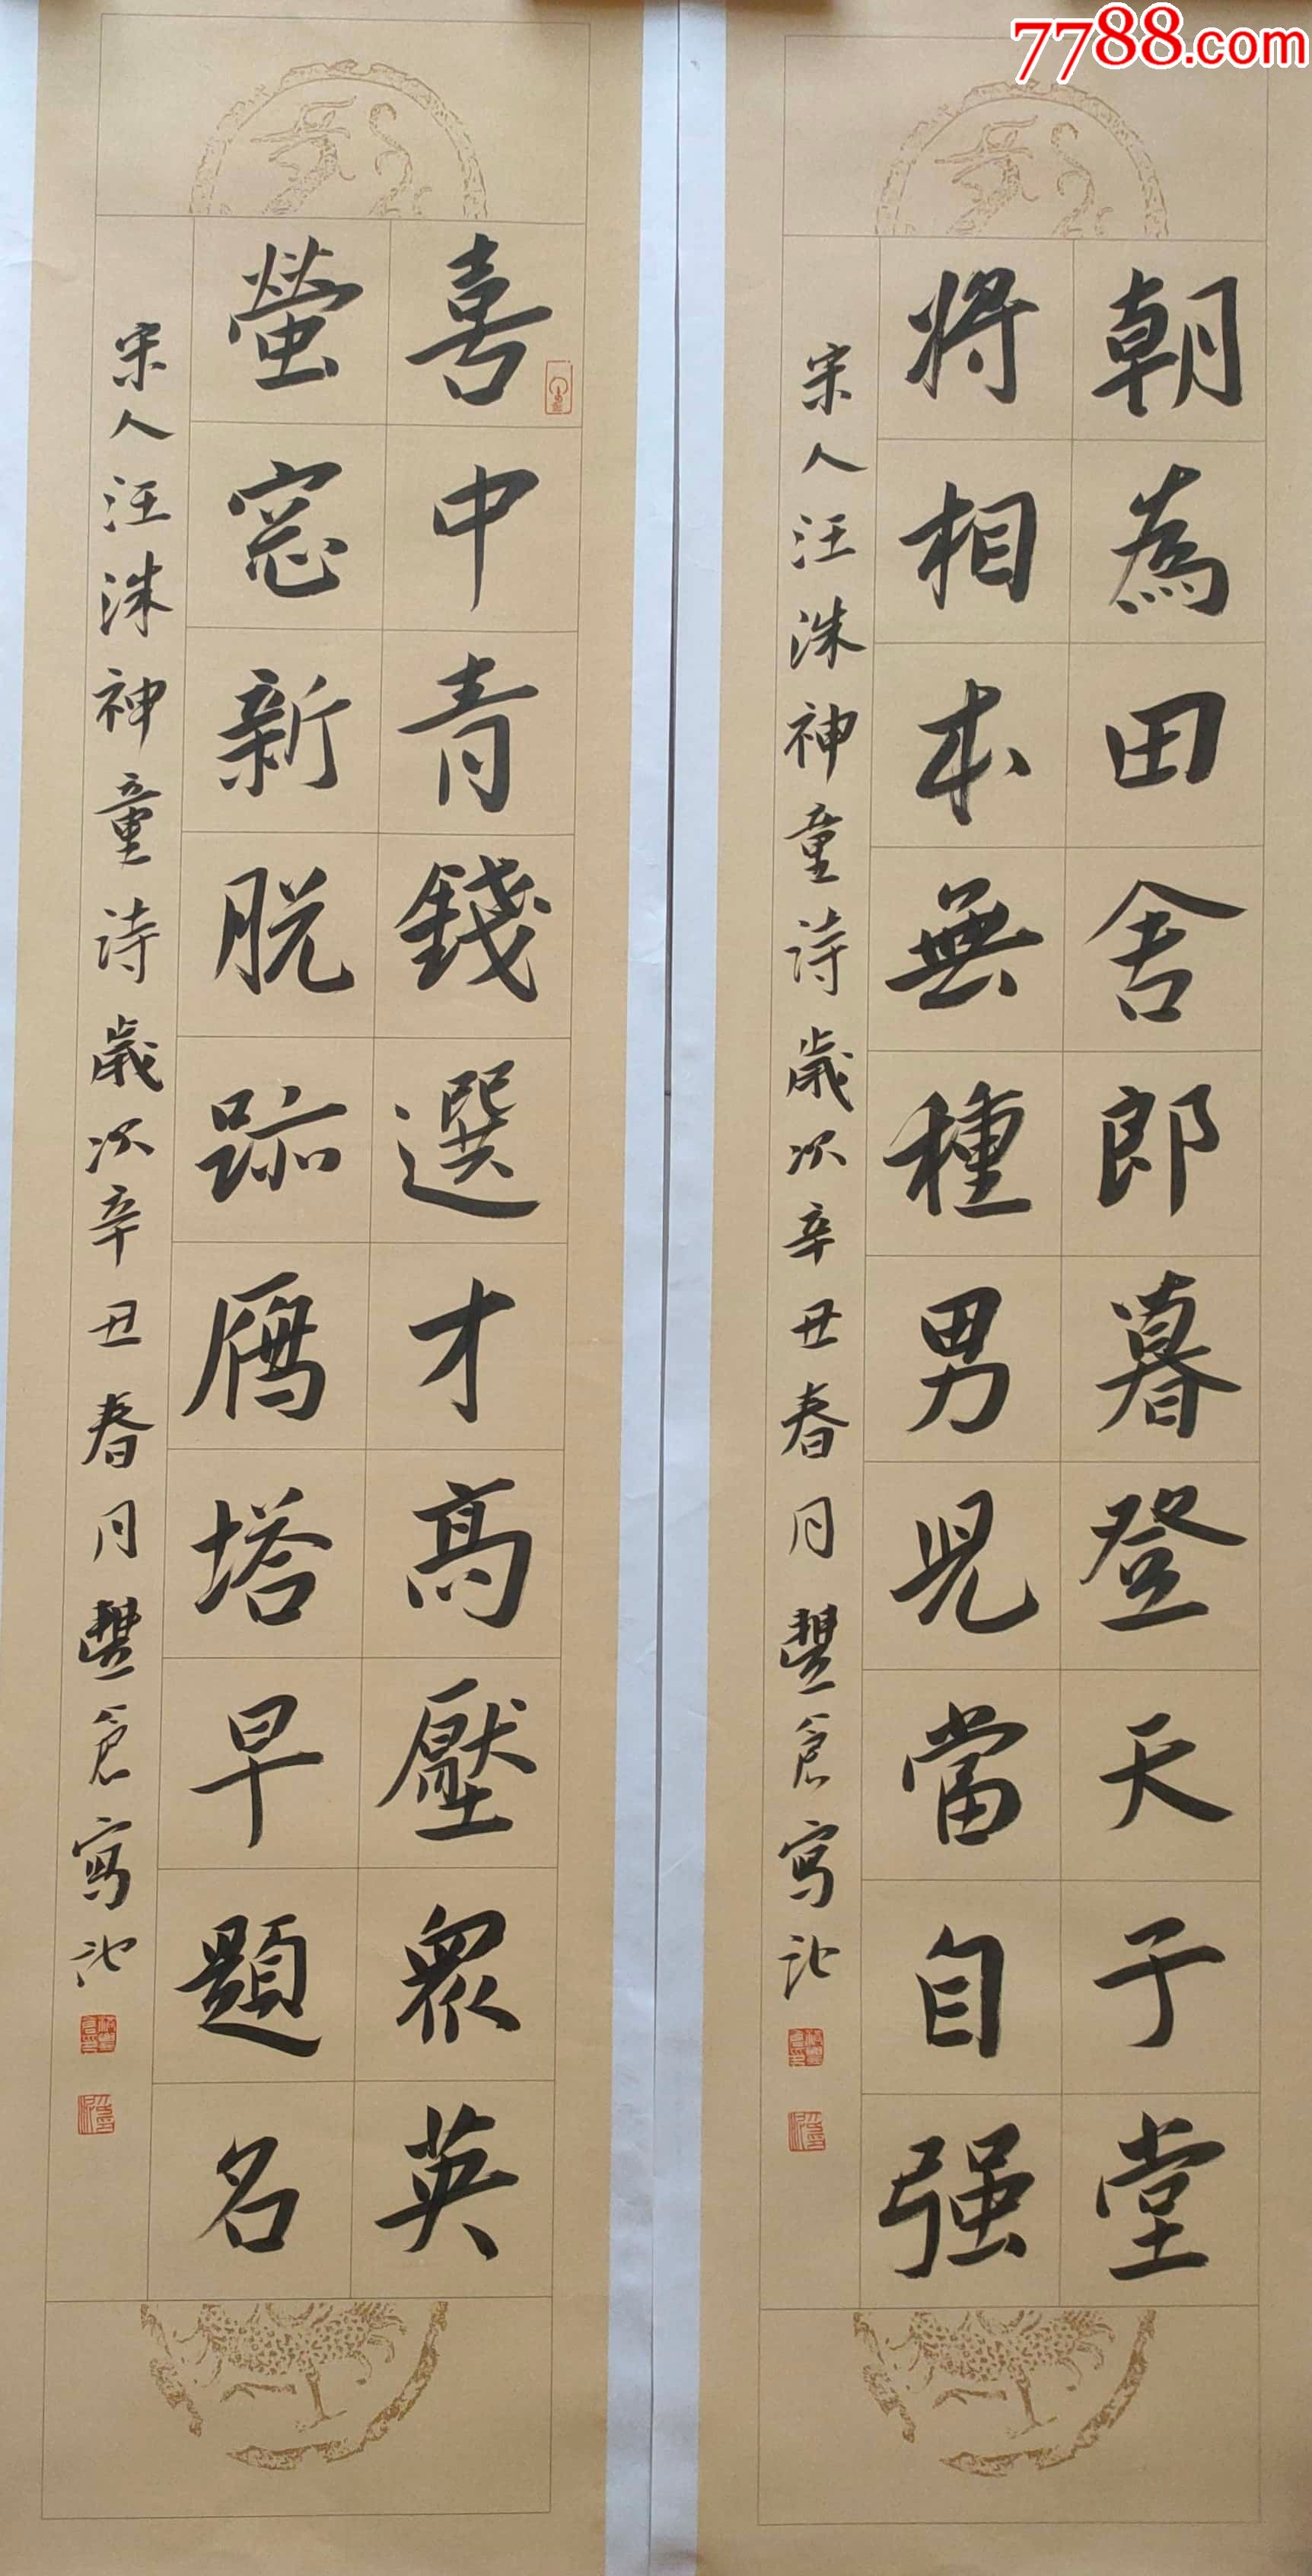 7788.com
朝為田舍郎暮登天子堂
将相本無種男兒當自强
宋人汪洙神童詩歲次辛丑春月倉寫記
喜中青錢選才高壓眾英
螢窓新脱跡鴈塔早題名
宋人汪洙神童詩歲次辛丑春月倉寫記